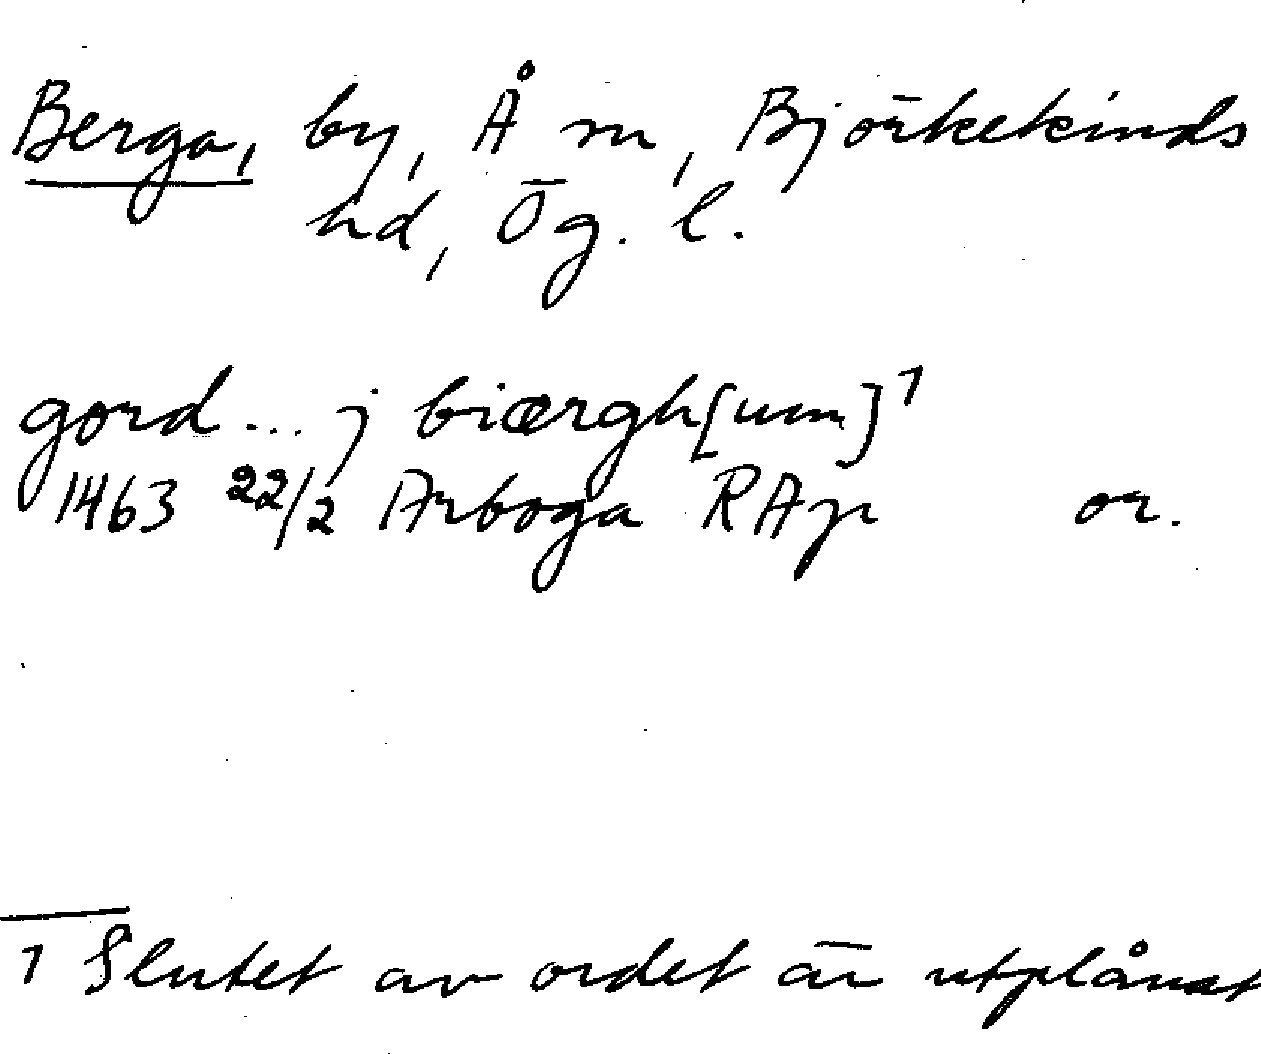 Berga, by, Å sn, Björkekinds
hd, Ög. l.
gord... j biærgh[um]¹
1463 22/2 Arboga RAp or.
1 Slutet av ordet är utplånat